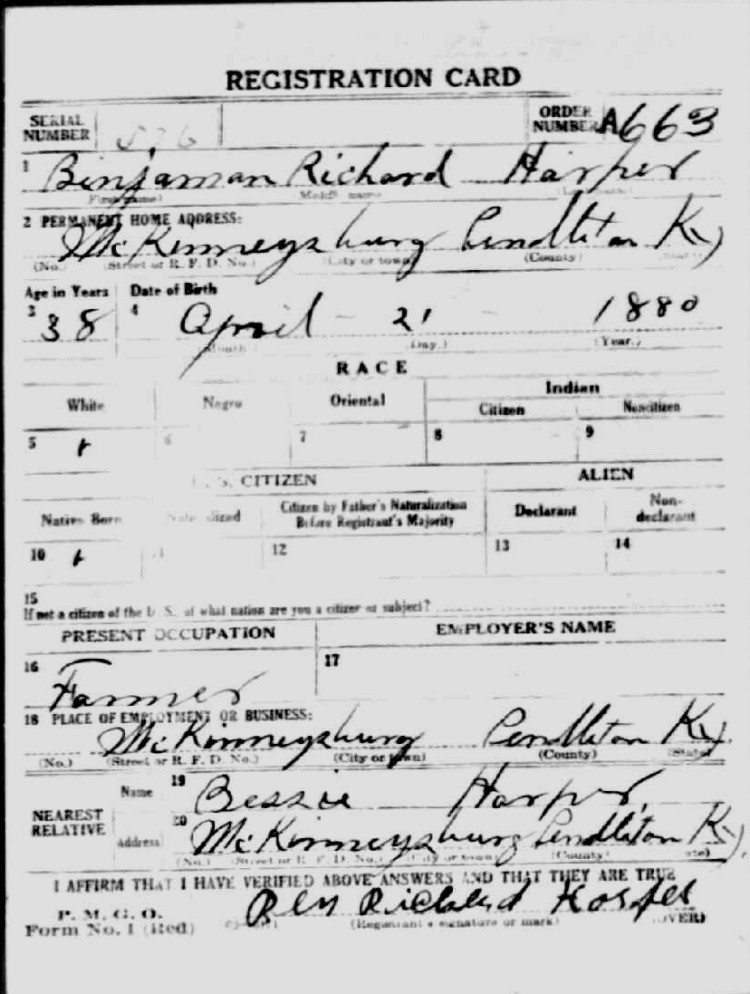 REGISTRATION CARD
SERIAL NUMBER 576 ORDER NUMBER A663
1 Binjaman Richard Harper
(First name) (Middle name) (Last name)
2 PERMANENT HOME ADDRESS:
McKinneysburg Pendleton Ky
(No.) (Street or R. F. D. No.) (City or town) (County) (State)
Age in Years Date of Birth
3 38 4 April - 21 - 1880
(Month) (Day.) (Year.)
RACE
White Negro Oriental Indian
Citizen Noncitizen
5 6 7 8 9
U. S. CITIZEN ALIEN
Native Born Naturalized Citizen by Father's Naturalization Before Registrant's Majority Declarant Non-declarant
10 11 12 13 14
15
If not a citizen of the U. S., of what nation are you a citizen or subject?
PRESENT OCCUPATION EMPLOYER'S NAME
16 Farmer 17
18 PLACE OF EMPLOYMENT OR BUSINESS:
McKinneysburg Pendleton Ky.
(No.) (Street or R. F. D. No.) (City or town) (County) (State)
NEAREST RELATIVE
Name 19 Bessie Harper
Address 20 McKinneysburg Pendleton Ky
(No.) (Street or R. F. D. No.) (City or town) (County) (State)
I AFFIRM THAT I HAVE VERIFIED ABOVE ANSWERS AND THAT THEY ARE TRUE
P. M. G. O.
Form No. 1 (Red) Ben Richard Harper
(Registrant's signature or mark) (OVER)